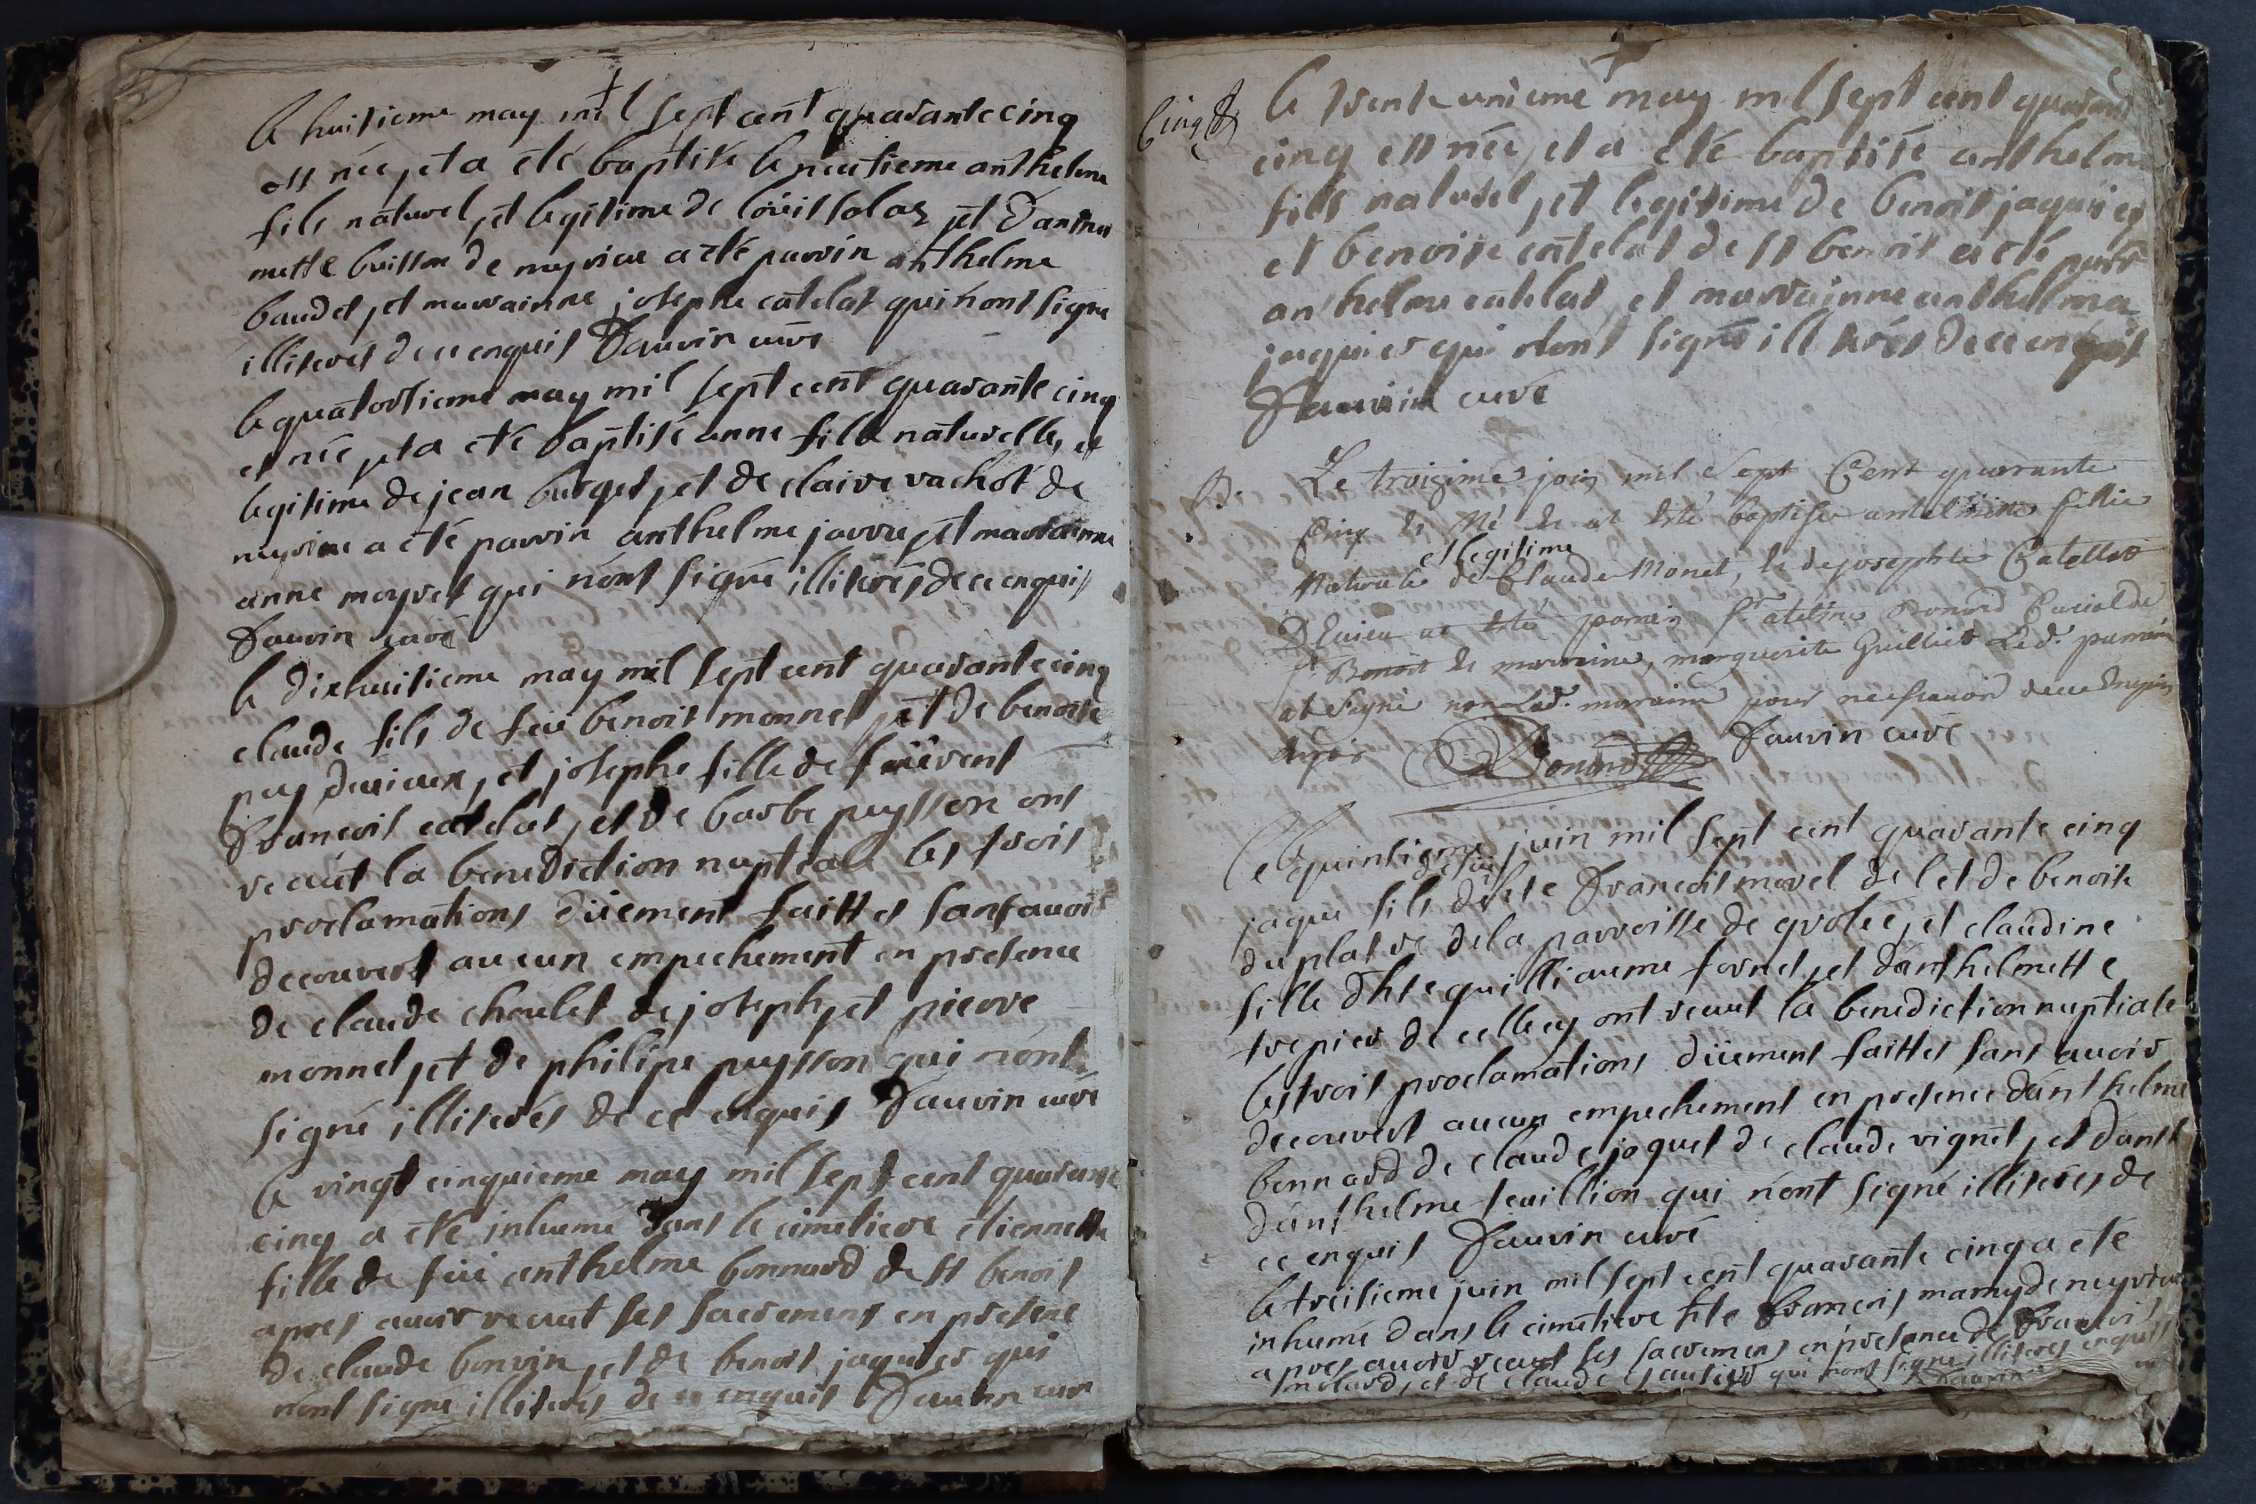 le huitieme may mil sept cent quarante cinq
est née, et a été baptisé le neutieme anthelme
fils naturel, et legitime de loüis solas, et d'anthel
mette buisson de neyrieu a été parrin anthelme
baudet, et marrainne josephe catelat qui n'ont signé
illiterés de ce enquis Dauvin curé
le quatortieme may mil sept cent quarante cinq
et née, et a été baptisé anne fille naturelle, et
legitime de jean burget, et de claire vachot de
neyrieu a été parrin anthelme jarru, et marrainne
anne mayret qui n'ont signé illiterés de ce enquis
Dauvin curé
le dixhuitieme may mil sept cent quarante cinq
claude fils de feu benoit monnet, et de benoite
puy d'evieux, et josephe fille de feu
François catelat, et de barbe puysson ont
recut la benediction nuptiale les trois
proclamations düement faittes sans avoir
decouvert aucun empechement en presence
de claude choulet de joseph, et pierre
monnet, et de philipe puysson qui n'ont
signé illiterés de ce enquis Dauvin curé
le vingt cinquieme may mil sept cent quarante
cinq a été inhumé dans le cimetiere etiennette
fille de feu anthelme bonnard de st benoit
apres avoir recut ses sacrements en presence
de claude bonvin, et de benoit jaquier qui
n'ont signé illiterés de ce enquis Dauvin curé
le trente unieme may mil sept cent quarante
cinq est née, et a été baptisé anthelme
fils naturel, et legitime de benoit jaquier
et benoite catelat de st benoit a été parr
anthelme catelat, et marrainne anthelma
jaquier qui n'ont signé illiterés de ce enquis
Dauvin curé
B. Le troizime join mil Sept Cent quarrante
Cinq Et Né Et at Esté baptisée antelmine fillie
et legitime
Naturele de Claude Monet, Et de josephte Catellat
D'Evieu at Esté parrein Sr. atelme Bonard
St. Benoit Et marraine, marguerite Guilliot Led. parrein
at Signé non Lad. marraine pour ne sçavoir de ce Enquis
Bonard Dauvin curé
Le quintieme juin mil sept cent quarante cinq
jaque fils de feu hte François morel de let de benoite
duplatre de la parroisse de grolée, et claudine
fille d'hte guilliaume fornet, et d'anthelmette
trepier de celle cy ont recut la benediction nuptiale
les trois proclamations düement faittes sans avoir
decouvert aucun empechement en presence d'anthelme
bonnard de claude jaquet de claude vignet, et d'anth
d'anthelme feuillion qui n'ont signé illiterés de
ce enquis Dauvin curé
le treitieme juin mil sept cent quarante cinq a été
inhumé dans le cimetiere hte François mamy de neyrieu
apres avoir recut ses sacrements en presence de François
molard, et de claude gautier qui n'ont signé illiterés enquis
Dauvin